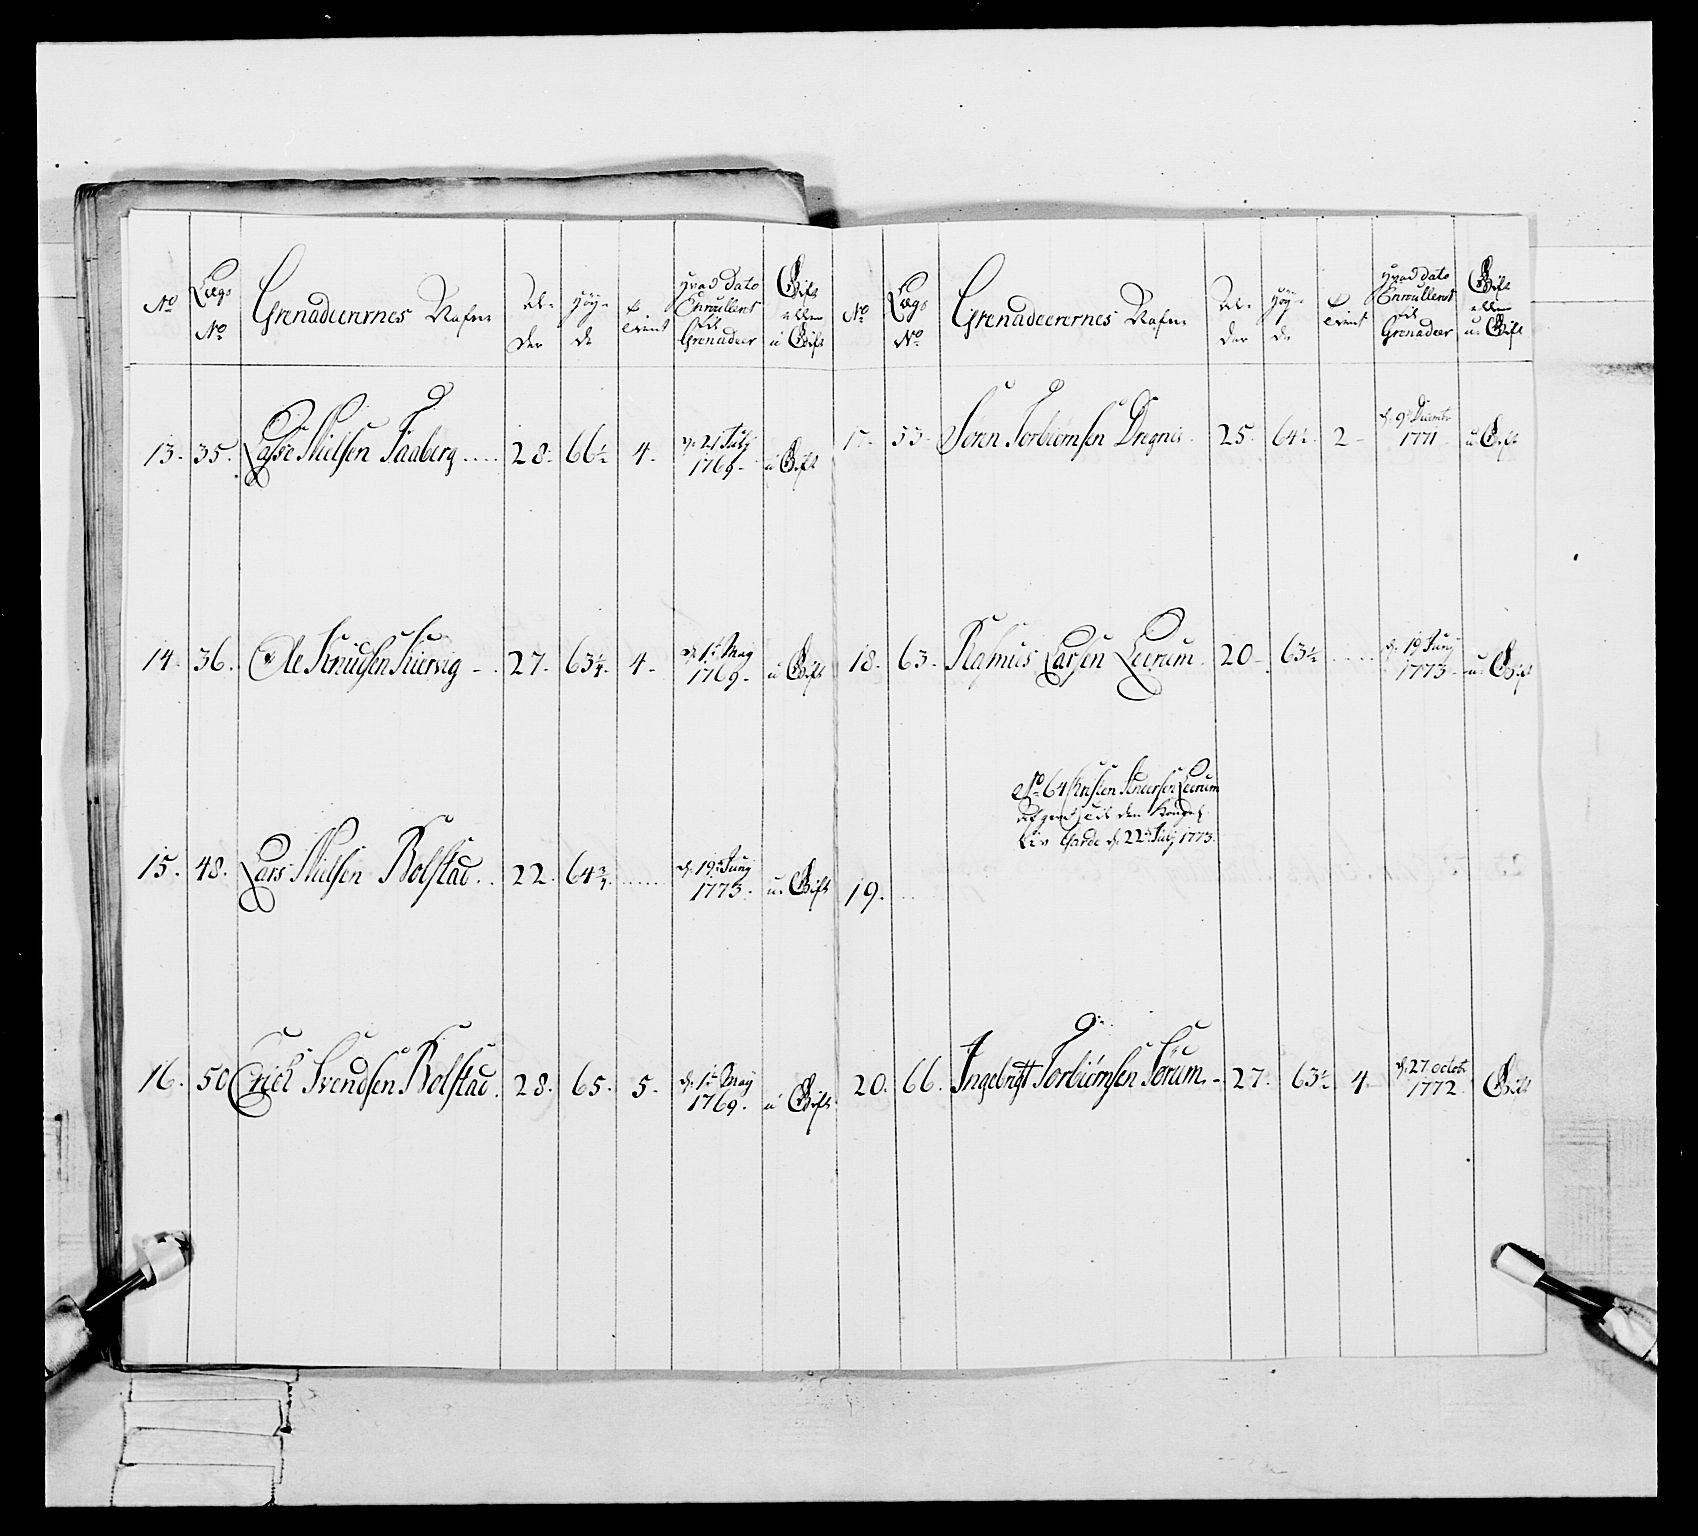 No
Lægs No
Grenadeerernes Nafne
Al-der
Høy-de
tient
Hvad Dato Enroullent til Grenadeer
Gift eller u Gift
13. 35. Lasse Nielsen Faaberg 28. 66½ 4. d. 21 July 1769. u Gift
14. 36. Ole Knudsen 27. 63¼. 4. d. 1t May 1769. u Gift
15. 48. Lars Nielsen Bolstad 22. 64¾. d. 19 Juny 1773. u. Gift
16. 50 Erich Svendsen Bolstad. 28. 65. 5. d. 1t May 1769. u Gift
No
Lægs No
Grenadeerernes Nafne
Al-der
Høy-de
tient
Hvad Dato Enroullent til Grenadeer
Gift eller u. Gift
17. 53. Søren Torbiørnsen Dregnis 25. 64½. 2. d. 9 Decembr 1771 u Gift
18. 63. Rasmus Larsen Leerum 20. 63½ d. 19 Juny 1773 u. Gift
No 64 Christen Leerum
afgaaet til den Kongel.
Liv Garde d. 22 July 1773.
19.
20. 66. Ingebrigt Torbiørnsen Sørum 27. 63½ 4 d. 27 octobr 1772. Gift